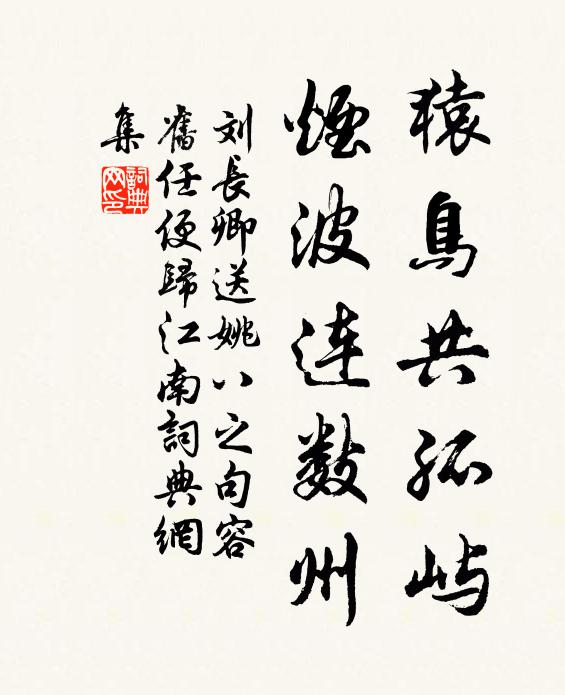 猿鳥共孤嶼
煙波連數州
刘長卿送姚八之句容
舊任便歸江南詞典網
集
詞典
网印